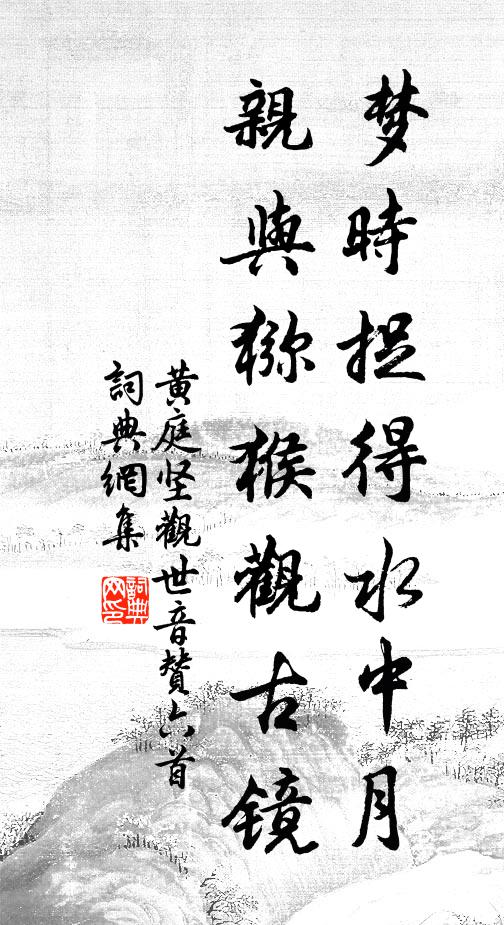 梦時捉得水中月
親與獼猴觀古镜
黃庭坚觀世音賛六首
詞典網集
詞典网印